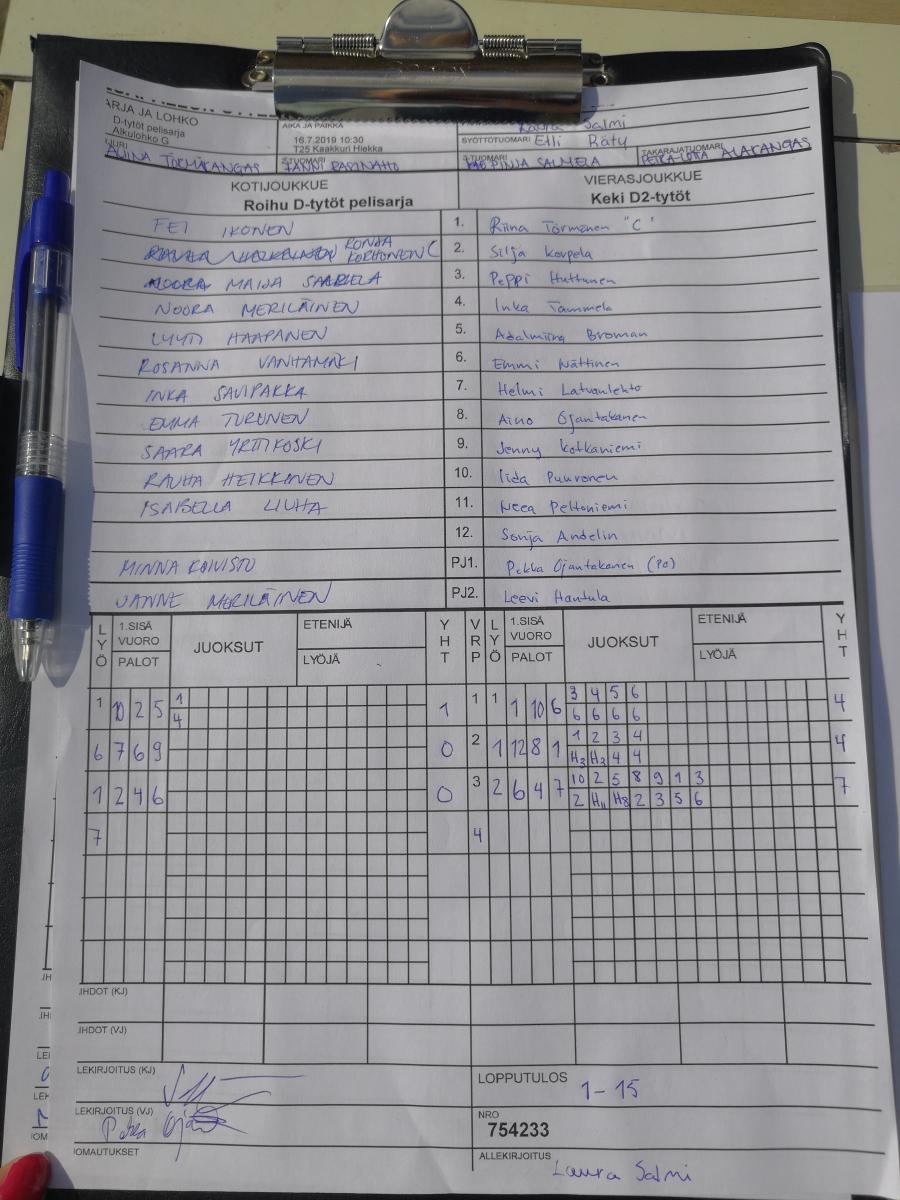 ARJA JA LOHKO
D-tytöt pelisarja
Alkulohko G
AIKA JA PAIKKA
16.7.2019 10:30
T25 Kaakkuri Hiekka
Laura Salmi
SYÖTTÖTUOMARI Elli Räty
ALINA TÖRMÄKANGAS
2-TUOMARI
3-TUOMARI PINJA SALMELA
TAKARAJATUOMARI PETRA-LOTTA ALAKANGAS
KOTIJOUKKUE
Roihu D-tytöt pelisarja
VIERASJOUKKUE
Keki D2-tytöt
IKONEN 1. Riina Törmänen "C"
RONJA KORHONEN C 2. Silja Korpela
MAIJA SAARELA 3. Peppi Huttunen
NOORA MERILÄINEN 4. Inka Tammela
LYYTI HAAPANEN 5. Adalmiina Broman
ROSANNA VANHAMÄKI 6. Emmi Nättinen
INKA SAVIPAKKA 7. Helmi Latvanlehto
EMMA TURUNEN 8. Aino Ojantakanen
SAARA YRTTIKOSKI 9. Jenny Kotkaniemi
RAUHA HEIKKINEN 10. Iida Puuronen
ISABELLA LIUHA 11. Neea Peltoniemi
12. Sonja Andelin
MINNA KOIVISTO PJ1. Pekka Ojantakanen (PO)
JANNE MERILÄINEN PJ2. Leevi Hantula
LYÖ 1.SISÄ VUORO PALOT JUOKSUT ETENIJÄ LYÖJÄ YHT VRP LYÖ 1.SISÄ VUORO PALOT JUOKSUT ETENIJÄ LYÖJÄ YHT
1 10 2 5 1 1 1 1 1 10 6 3 4 5 6 4
4 6 6 6 6
6 7 6 9 0 2 1 12 8 1 1 2 3 4 4
H3 H3 4 4
1 2 4 6 0 3 2 6 4 7 10 2 5 8 9 1 3 7
2 H11 H8 2 3 5 6
7 4
IHDOT (KJ)
IHDOT (VJ)
LEKIRJOITUS (KJ)
LOPPUTULOS 1-15
LEKIRJOITUS (VJ) Pekka
NRO
754233
OMAUTUKSET
ALLEKIRJOITUS Laura Salmi